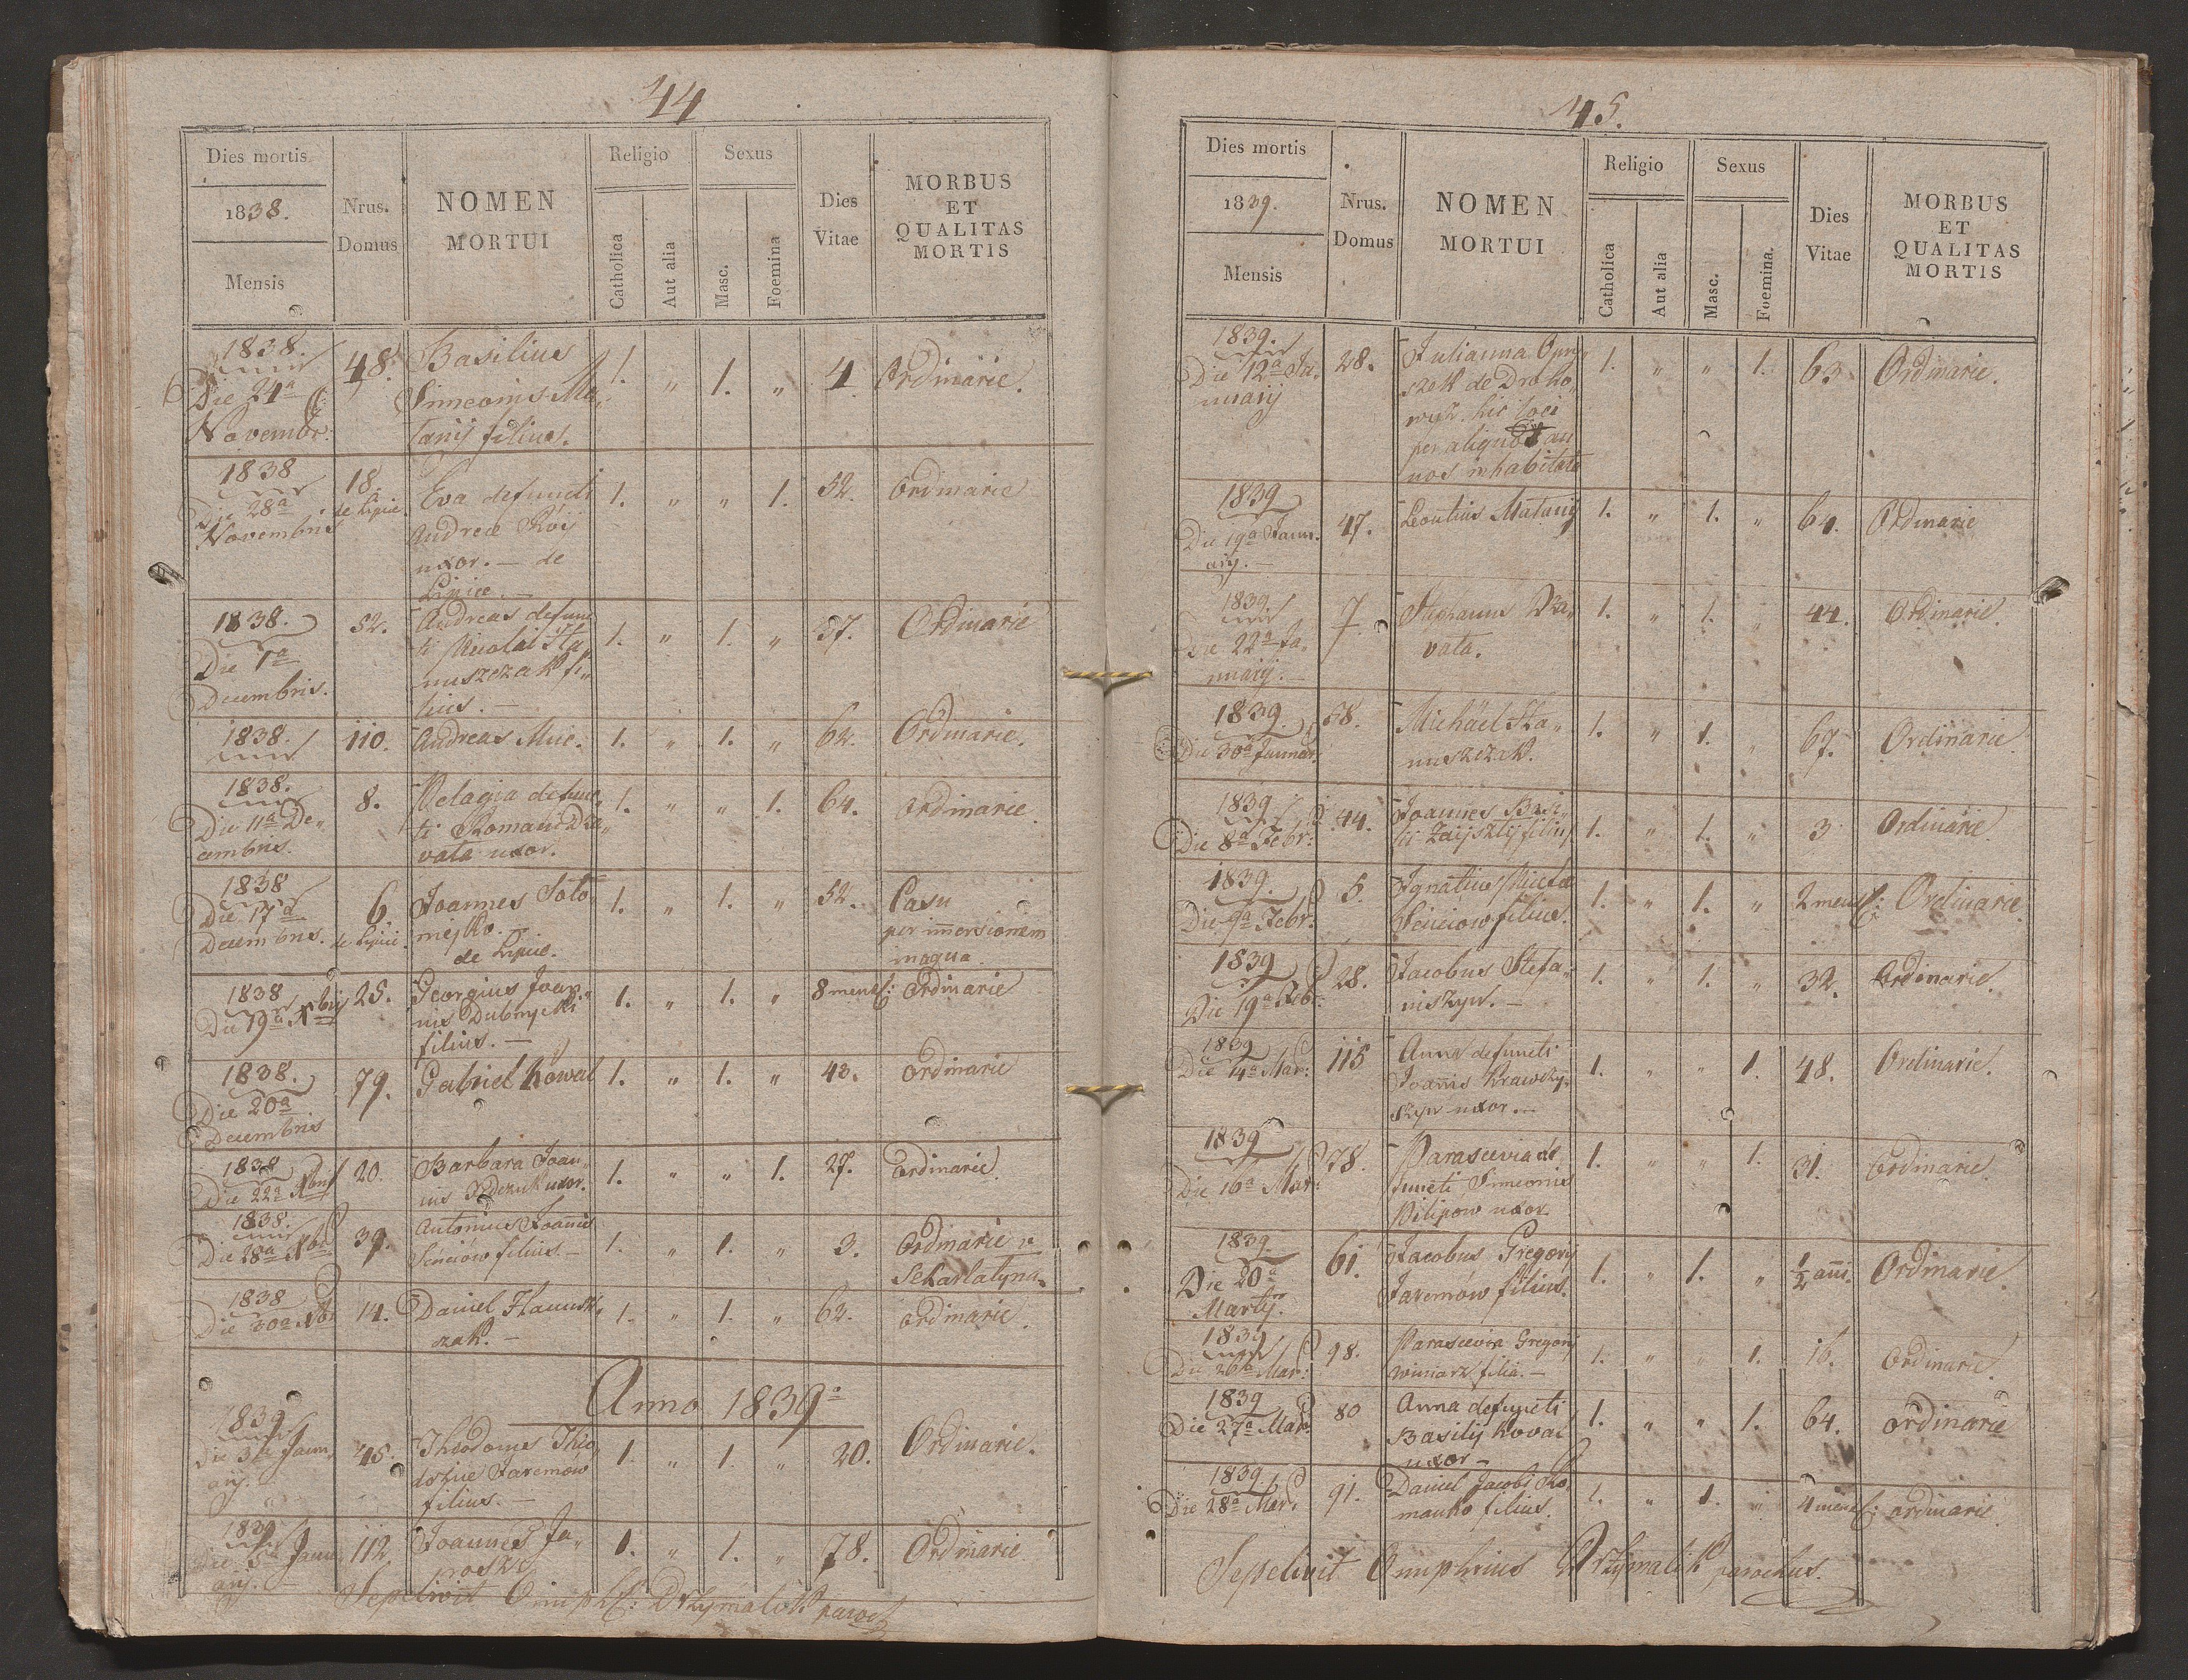 44
Dies mortis
1838.
Mensis
Nrus.
Domus
NOMEN
MORTUI
Religio
Catholica
Aut alia
Sexus
Masc.
Foemina
Dies
Vitae
MORBUS
ET
QUALITAS
MORTIS
1838.
Die 24a
Novembr:
48.
Basilius
Simeonis Ma„
tanij filius.
1. „ 1. „ 4 Ordinarie.
1838
Die 28a
Novembris
18.
de Lipice.
Eva defuncti
Andreae Kóij
uxor. — de
Lipice. —
1. „ „ 1. 52. Ordinarie
1838.
Die 1a
Decembris.
52.
Andreas defunc
ti Nicolai Ha„
nuszczak fi„
lius. —
1. „ 1. „ 37. Ordinarie
1838.
110. Andreas Muc. 1. „ 1. „ 62. Ordinarie.
1838.
Die 11a De„
cembris.
8.
Pelagia defunc„
ti Romani Dza„
vala uxor.
1. „ „ 1. 64. ordinarie.
1838
Die 17a
Decembris.
6.
de Lipice.
Joannes Soło„
mejko.
de Lipice.
1. „ 1. „ 52.
Casu
per immersionem
in aqua.
1838
Die 19a Xbris
25.
Georgius Joan„
nis Dubnycki
filius. —
1. „ 1. „ 8 mens: Ordinarie
1838.
Die 20a
Decembris
79. Gabriel Kowal 1. „ 1. „ 43. ordinarie
1838
Die 22a Xbris
20.
Barbara Joan„
nis uxor.
1. „ „ 1. 27. ordinarie.
1838.
Die 28a Xbr
39.
Antonius Joannis
Seńciów filius. —
1. „ 1. „ 3.
Ordinarie
Szkarlatyna.
1838
Die 30a Xbr
14.
Daniel Hanusz„
czak. —
1. „ 1. „ 62. ordinarie.
Anno 1839o
1839
Die 3a Janu
arij.
45.
Theo
dosius Jaremow
filius. —
1. „ 1. „ 20. Ordinarie.
1839
Die 5a Janu
arij. —
112.
Joannes Ja„
roszko
1. „ 1. „ 78. Ordinarie
Sepelivit Onuph: Drzymalik paroch
45.
Dies mortis
1839.
Mensis
Nrus.
Domus
NOMEN
MORTUI
Religio
Catholica
Aut alia
Sexus
Masc.
Foemina.
Dies
Vitae
MORBUS
ET
QUALITAS
MORTIS
1839.
Die 12a Ja„
nuarij
28.
Julianna Opry„
szok de Droho„
wyż. hic loci
per aliquot an
nos inhabitata
1. „ „ 1. 63 Ordinarie.
1839
Die 19a Janu„
arij. —
47. Leontius Matanij 1. „ 1. „ 64. Ordinarie
1839.
Die 22a Ja„
nuarij. —
7.
Stephanus Dza„
vala.
1. „ 1. „ 44. Ordinarie.
1839.
Die 30a Januar:
58.
Michael Ha„
nuszczak.
1. „ 1. „ 67. Ordinarie
1839
Die 8a Febr:
44.
Joannes Basi„
lii filius
1. „ 1. „ 3 Ordinarie
1839.
Die 9a Febr:
5.
Ignatius Nicolai
Seńciow filius.
1. „ 1. „ 2 mens: Ordinarie.
1839
Die 19a Feb:
28.
Jacobus Stefa„
niszyn. —
1. „ 1. „ 32. Ordinarie.
1839
Die 14a Mar:
115
Anna defuncti
Joanis Krawczy„
szyn uxor. —
1. „ „ 1. 48. Ordinarie.
1839
Die 16a Mar:
78.
Parascevia de„
functi Simeonis
Pilipow uxor
1. „ „ 1. 31. Ordinarie.
1839.
Die 20a
Martij.
61.
Jacobus Gregorij
Jaremow filius.
1. „ 1. „ ½ anni. Ordinarie.
1839
Die 26a Mar:
98.
Parascevia Gregorij
Winiarz filia. —
1. „ „ 1. 16. Ordinarie.
1839
Die 27a Mar:
80
Anna defuncti
Basilij Koval
uxor —
1. „ „ 1. 64. ordinarie
1839.
Die 28a Mar:
91.
Daniel Jacobi Ro„
manko filius.
1. „ 1. „ 4 mens: ordinarie.
Sepelivit Onuphrius Drzymalik parochus.